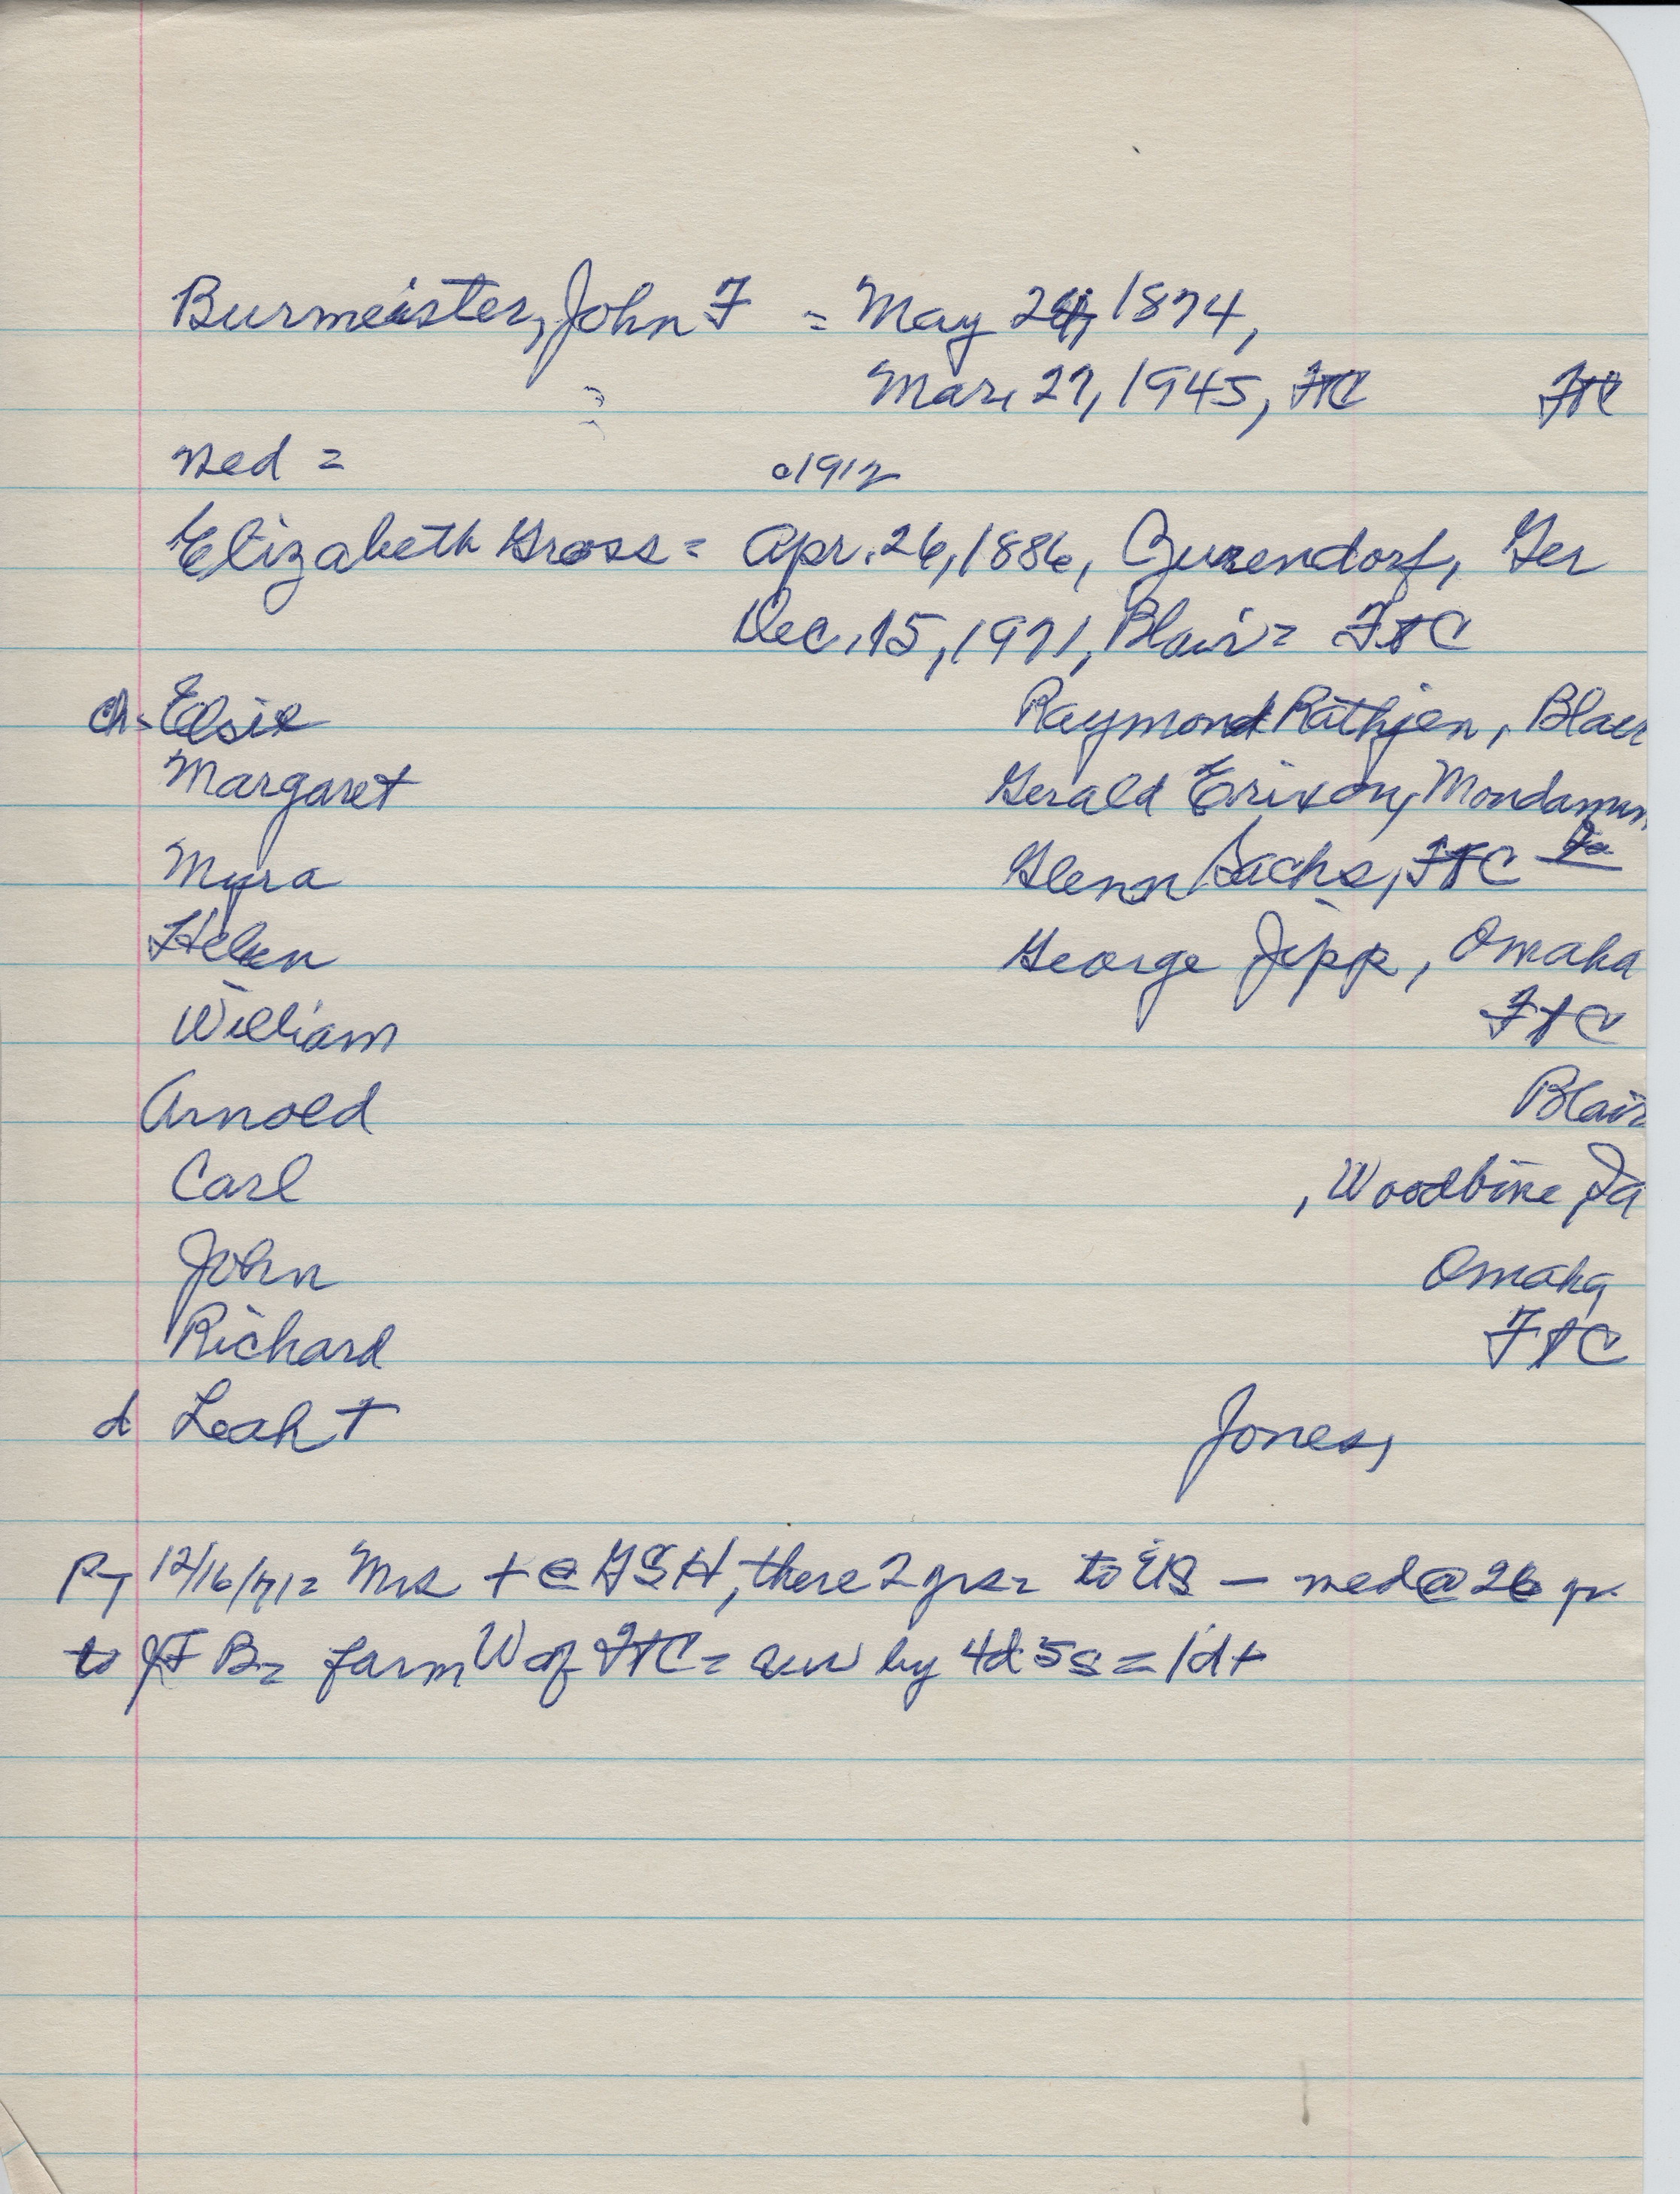 Burmeister, John F = May 24, 1874,
Mar. 27, 1945, FtC FtC
med = c1912
Elizabeth Gross = Apr. 26, 1886, Ger
Dec. 15, 1971, Blair = FtC
ch. Elsie Raymond Rathjen, Blair
Margaret Gerald Erixon, Mondamin
Ia
Myra Glenn Sachs, FtC
Helen George Jipp, Omaha
William FtC
Arnold Blair
Carl , Woodbine, Ia
John Omaha
Richard FtC
d Leah † Jones,
PT 12/16/71 = Mrs † @ GSH, there 2 yrs = to US — med @ 26 yr
to JFB = farm W of FtC = sur by 4d 5s = 1d †